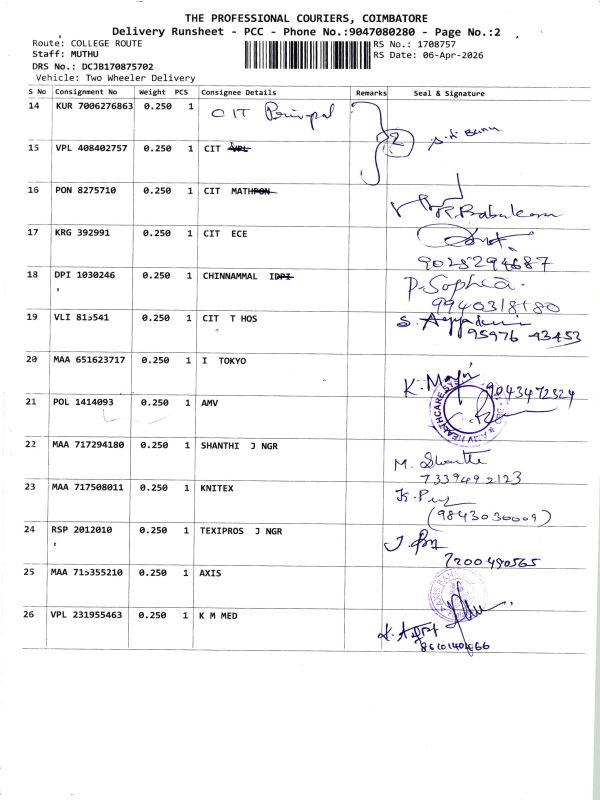 THE PROFESSIONAL COURIERS, COIMBATORE
Delivery Runsheet - PCC - Phone No.:9047080280 - Page No.:2
Route: COLLEGE ROUTE
RS No.: 1708757
Staff: MUTHU
RS Date: 06-Apr-2026
DRS No.: DCJB170875702
Vehicle: Two Wheeler Delivery
S No Consignment No Weight PCS Consignee Details Remarks Seal & Signature
14 KUR 7006276863 0.250 1 CIT Principal
2
15 VPL 408402757 0.250 1 CIT VPL
16 PON 8275710 0.250 1 CIT MATHPON
R. Babukaran
17 KRG 392991 0.250 1 CIT ECE
9025294687
18 DPI 1030246 0.250 1 CHINNAMMAL IDPI
P. Sophia
9940318480
19 VLI 815541 0.250 1 CIT T HOS
95976 43453
20 MAA 651623717 0.250 1 I TOKYO
K. Mani
9043472324
21 POL 1414093 0.250 1 AMV
22 MAA 717294180 0.250 1 SHANTHI J NGR
M. Shanthi
7339492123
23 MAA 717508011 0.250 1 KNITEX
(9843030009)
24 RSP 2012010 0.250 1 TEXIPROS J NGR
7200490565
25 MAA 715355210 0.250 1 AXIS
AXIS BANK
26 VPL 231955463 0.250 1 K M MED